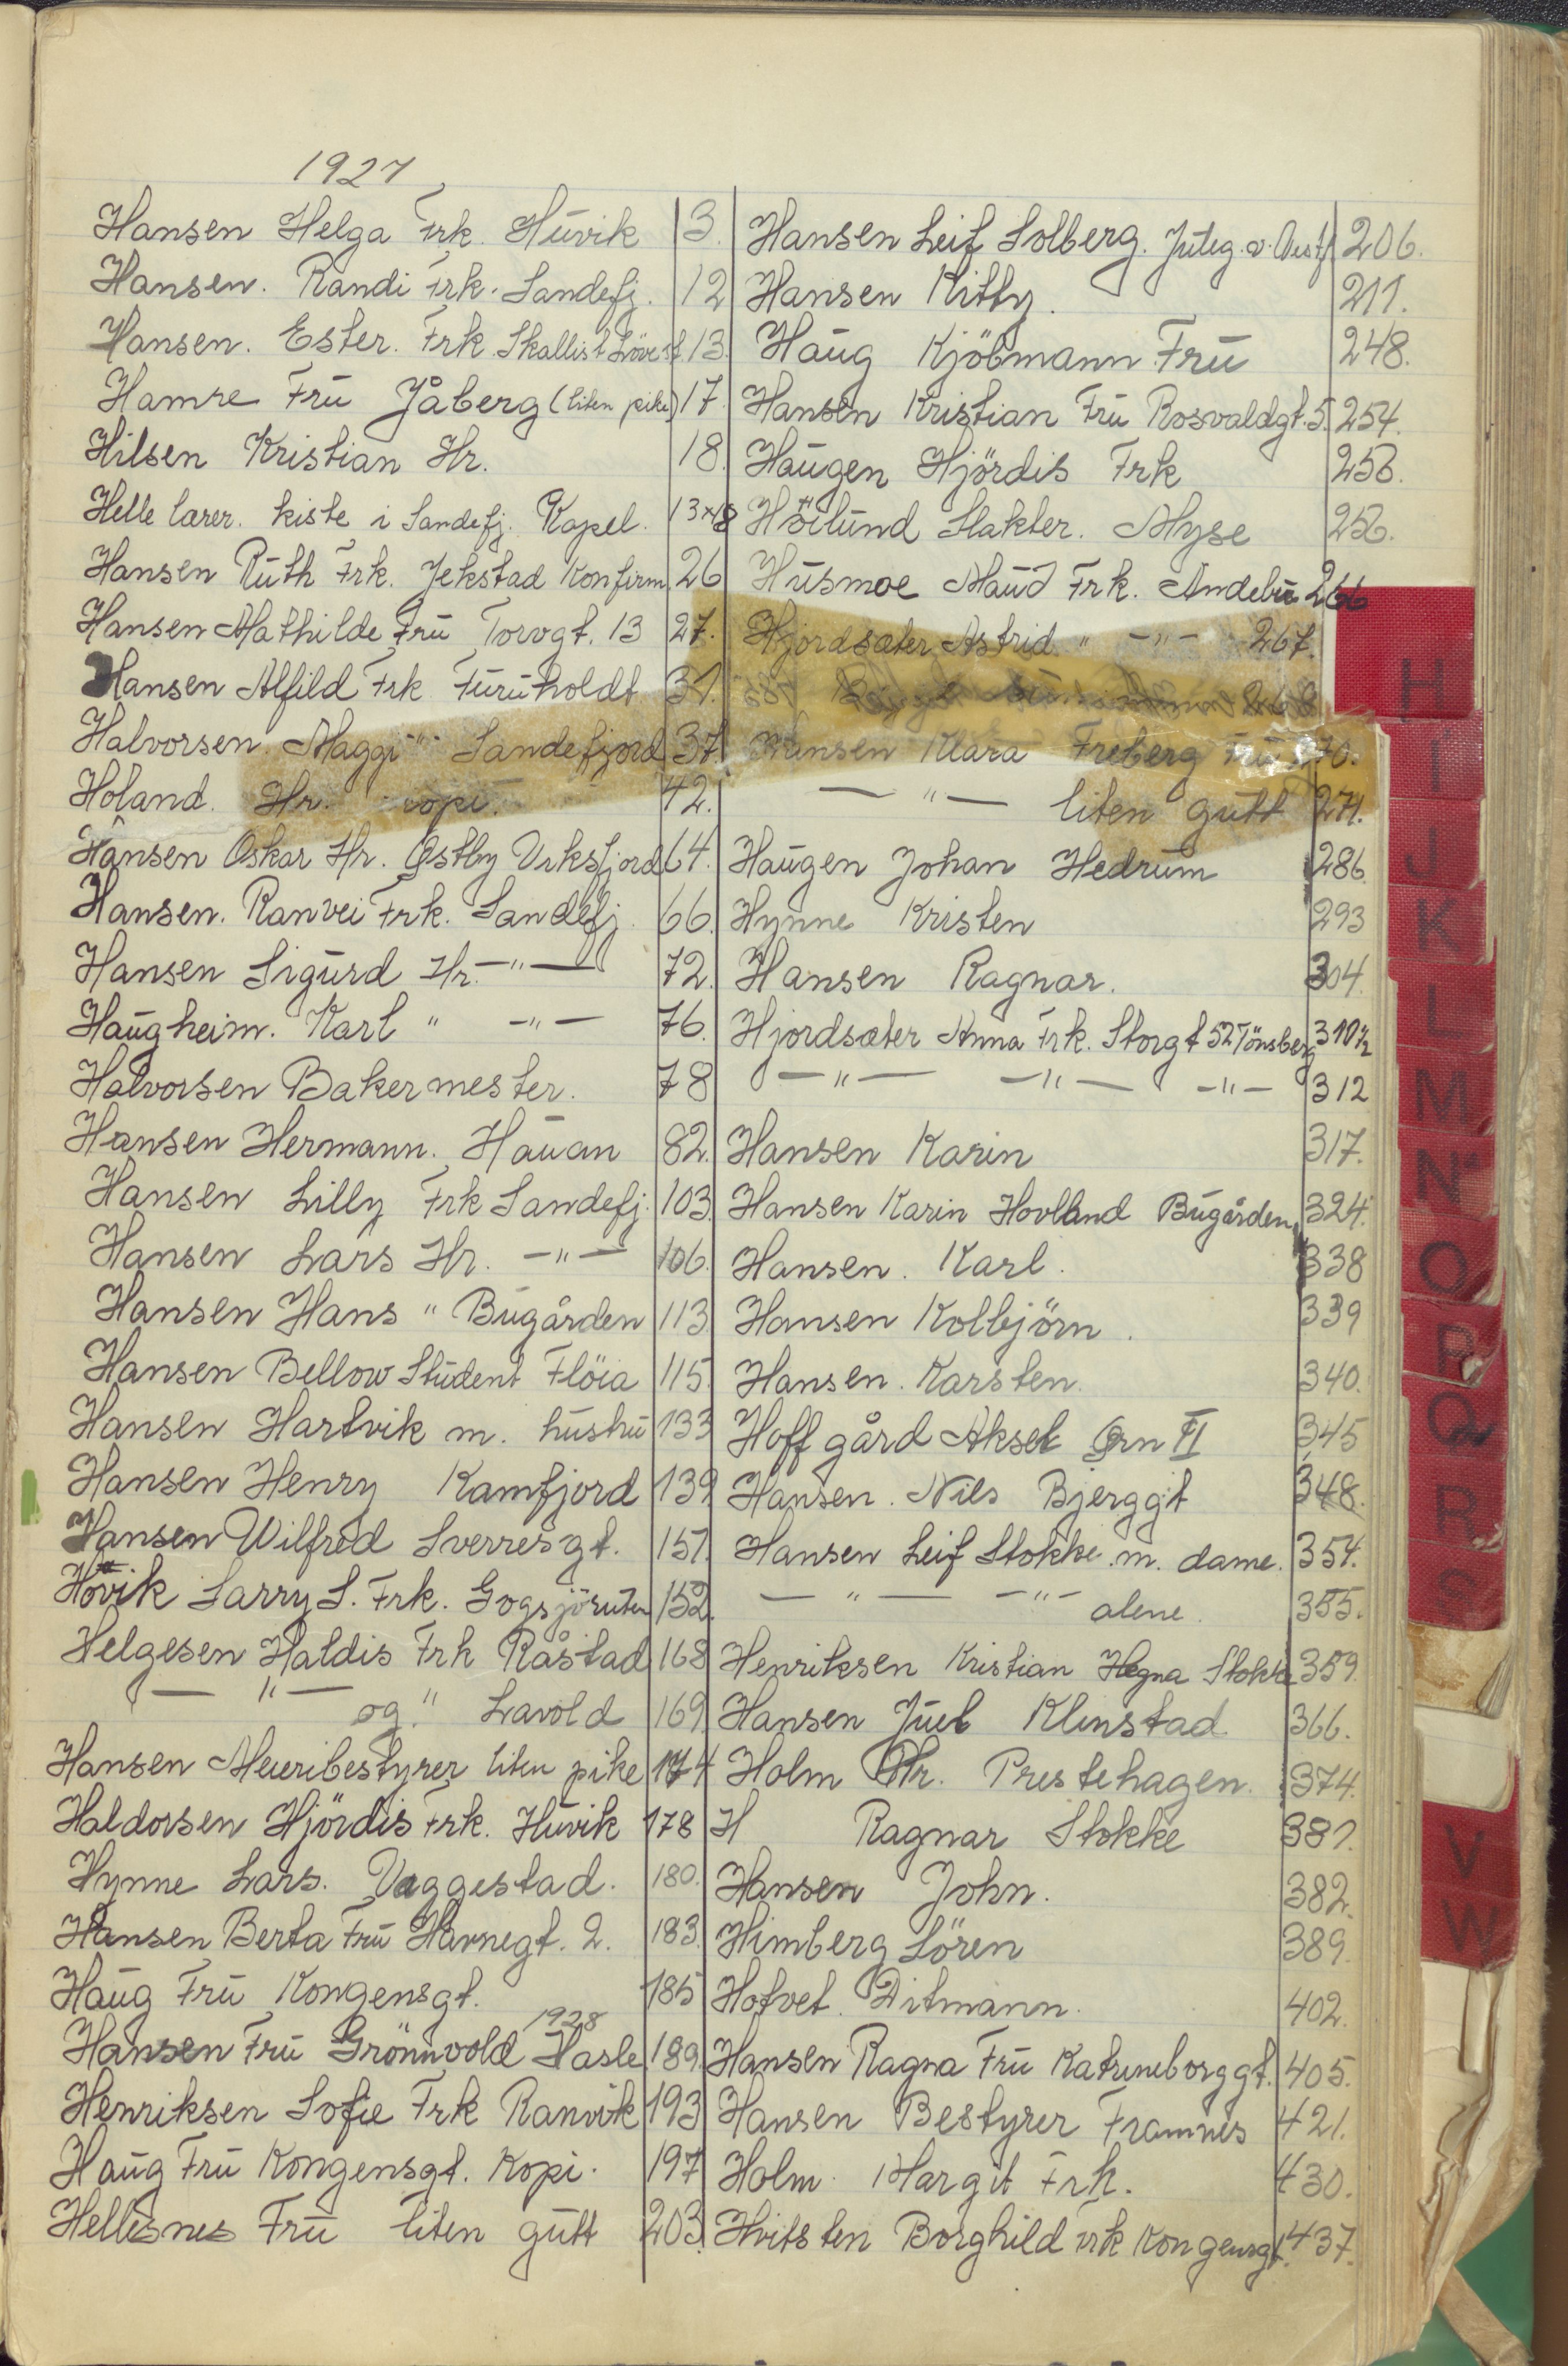 1927
Hansen Helga Frk. Huvik 3.
Hansen. Randi Frk. Sandefj. 12
Hansen. Ester. Frk Skallist 13.
Hamre Fru Jåberg (liten pike) 17.
Hilsen Kristian Hr. 18.
Helle lærer. kiste i Sandefj. Kapel. 13 x 18
Hansen Ruth Frk. Jekstad Konfirm. 26
Hansen Mathilde Fru Torvgt. 13 27.
Hansen Alfild Frk Furuholdt 31.
Halvorsen. Maggi " Sandefjord 37.
Holand. Hr. kopi. 42.
Hansen Oskar Hr. Østby 64.
Hansen. Ranvei Frk. Sandefj. 66.
Hansen Sigurd Hr. — " — 72.
Haugheim. Karl " — " — 76.
Halvorsen Bakermester. 78
Hansen Hermann. Hauan 82.
Hansen Lilly Frk Sandefj. 103.
Hansen Lars Hr. — " — 106.
Hansen Hans " Bugården 113
Hansen Bellow Student Flöia 115.
Hansen Hartvik m. hustru 133
Hansen Henry Kamfjord 139
Hansen Wilfred Sverresgt. 151.
Hövik Sarry S. Frk. 152.
Helgesen Haldis Frk Råstad 168
— " — og " Lavold 169.
Hansen Meieribestyrer liten pike 174
Haldorsen Hjördis Frk. Huvik 178
Hynne Lars. Vaggestad. 180.
Hansen Berta Fru Havnegt. 2. 183.
Haug Fru Kongensgt. 185
1928
Hansen Fru Grönnvold Hasle 189.
Henriksen Sofie Frk Ranvik 193
Haug Fru Kongensgt. Kopi. 197
Hellesnes Fru liten gutt 203.
Hansen Leif Solberg. 206.
Hansen Kitty. 211.
Haug Kjöbmann Fru 248.
Hansen Kristian Fru Rosvaldgt. 5. 254.
Haugen Hjördis Frk 256.
Höilund Slakter. Myse 256.
Husmoe Maud Frk. Andebu 266
Hjordsæter Astrid " — " — 267.
268
Hansen Klara Freberg Fru 270.
— " — liten gutt 271.
Haugen Johan Hedrum 286.
Hynne Kristen 293
Hansen Ragnar. 304.
Hjordsæter Anna Frk. Storgt 52 Tönsberg 310
— " — — " — — " — 312
Hansen Karin 317.
Hansen Karin Hovland Bugården 324.
Hansen. Karl. 338
Hansen Kolbjörn. 339
Hansen. Karsten. 340.
Hoffgård Aksel Ørn II 345
Hansen. Nils Bjerggt 348.
Hansen Leif Stokke m. dame. 354.
— " — — " — alene. 355.
Henriksen Kristian Hegna Stokke 359.
Hansen Juel Klinstad 366.
Holm Hr. Prestehagen. 374.
H Ragnar Stokke 381.
Hansen John. 382.
Himberg Sören 389.
Hotvet. Ditmann. 402.
Hansen Ragna Fru Katrineborggt. 405.
Hansen Bestyrer Framnes 421.
Holm Margit Frk. 430.
Hvitsten Borghild Frk Kongensgt. 437.
H
I
J
K
L
M
N
O
P
Q
R
S
V
W